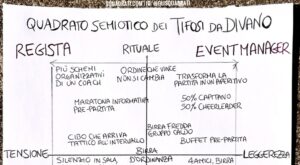 QUADRATO SEMIOTICO DEI TIFOSI DA DIVANO
REGISTA
RITUALE
EVENT MANAGER
PIÙ SCHEMI
ORGANIZZATIVI
DI UN COACH
ORDINE CHE VINCE
NON SI CAMBIA
TRASFORMA LA
PARTITA IN UN APERITIVO
MARATONA INFORMATIVA
PRE-PARTITA
50% CAPITANO
50% CHEERLEADER
CIBO CHE ARRIVA
TATTICO ALL'INTERVALLO
BIRRA FREDDA
GRUPPO CALDO
BUFFET PRE-PARTITA
TENSIONE
LEGGEREZZA
SILENZIO IN SALA,
BIRRA
D'ORDINANZA
4 AMICI, BIRRA